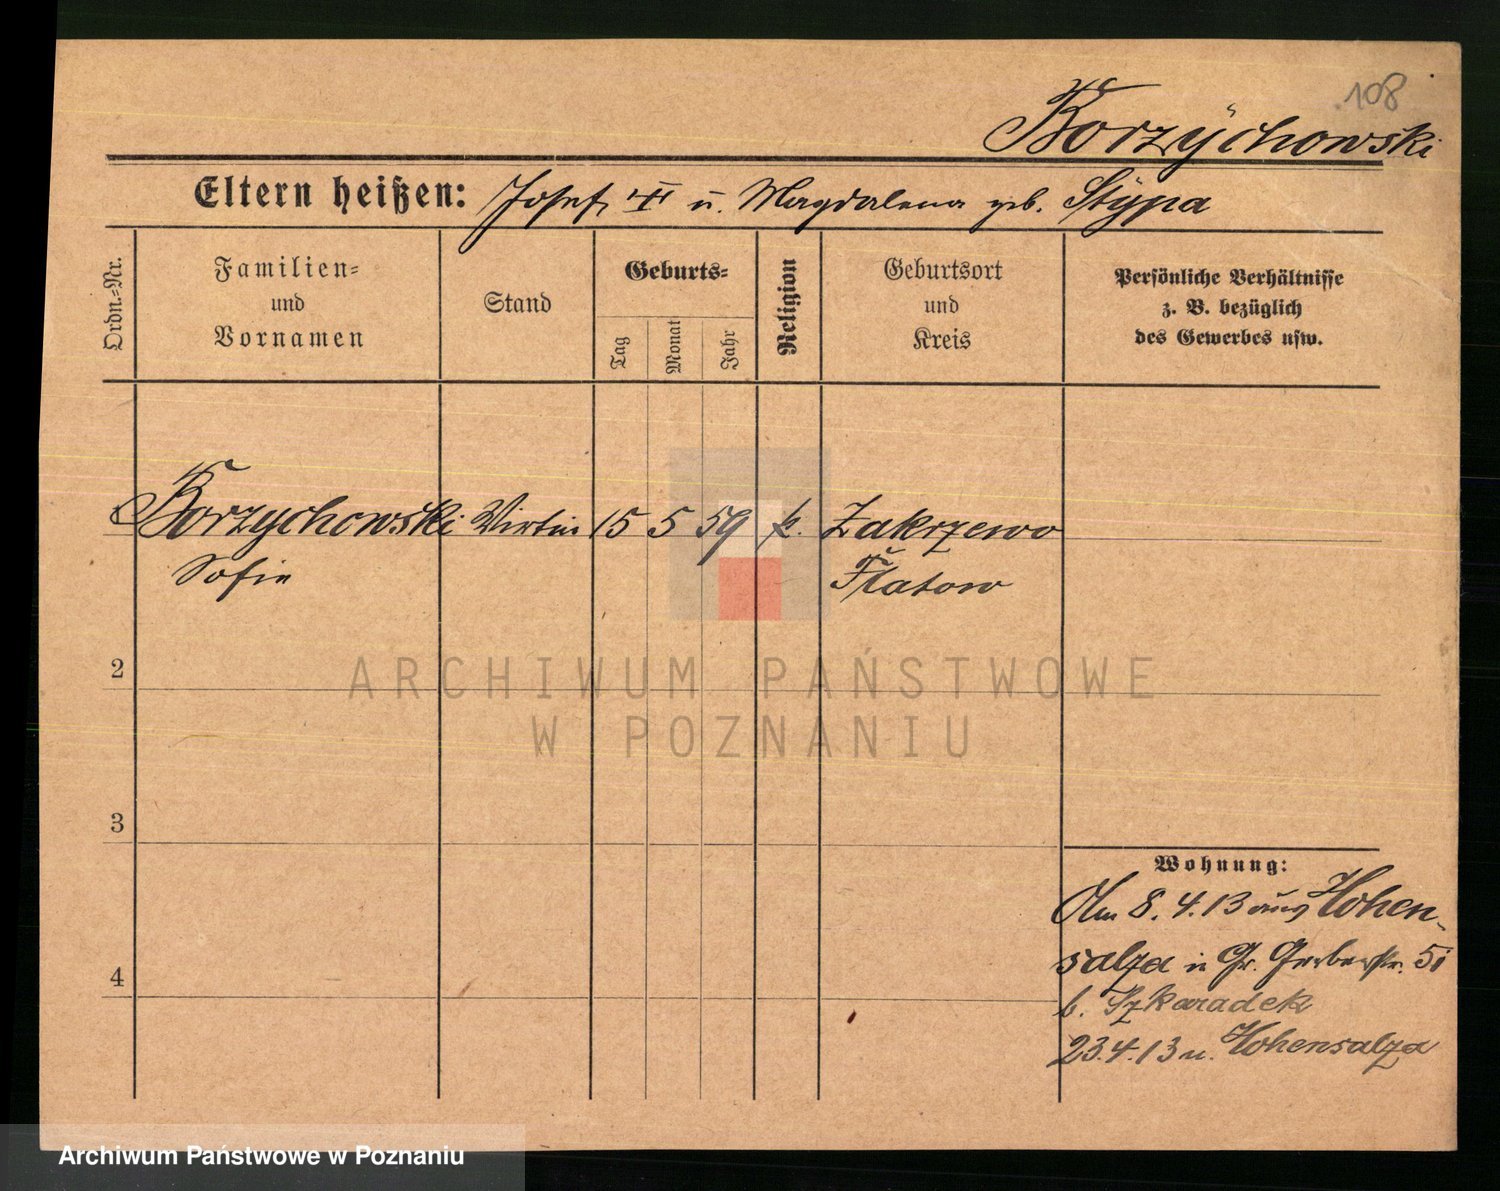 108
Borzychowski
Eltern heißen: Josef II u. Magdalena geb. Stypa
Ordn.=Nr.
Familien=
und
Vornamen
Stand
Geburts=
Tag
Monat
Jahr
Religion
Geburtsort
und
Kreis
Persönliche Verhältnisse
z. B. bezüglich
des Gewerbes usw.
Borzychowski Wirtin 15 5 59 k. Zakrzewo
Sofie Flatow
2
3
4
Wohnung:
Am 8. 4. 13 aus Hohen-
salza in Gr. Gerberstr. 51
b. Szkaradek
23.4.13 n. Hohensalza
ARCHIWUM PAŃSTWOWE
W POZNANIU
Archiwum Państwowe w Poznaniu